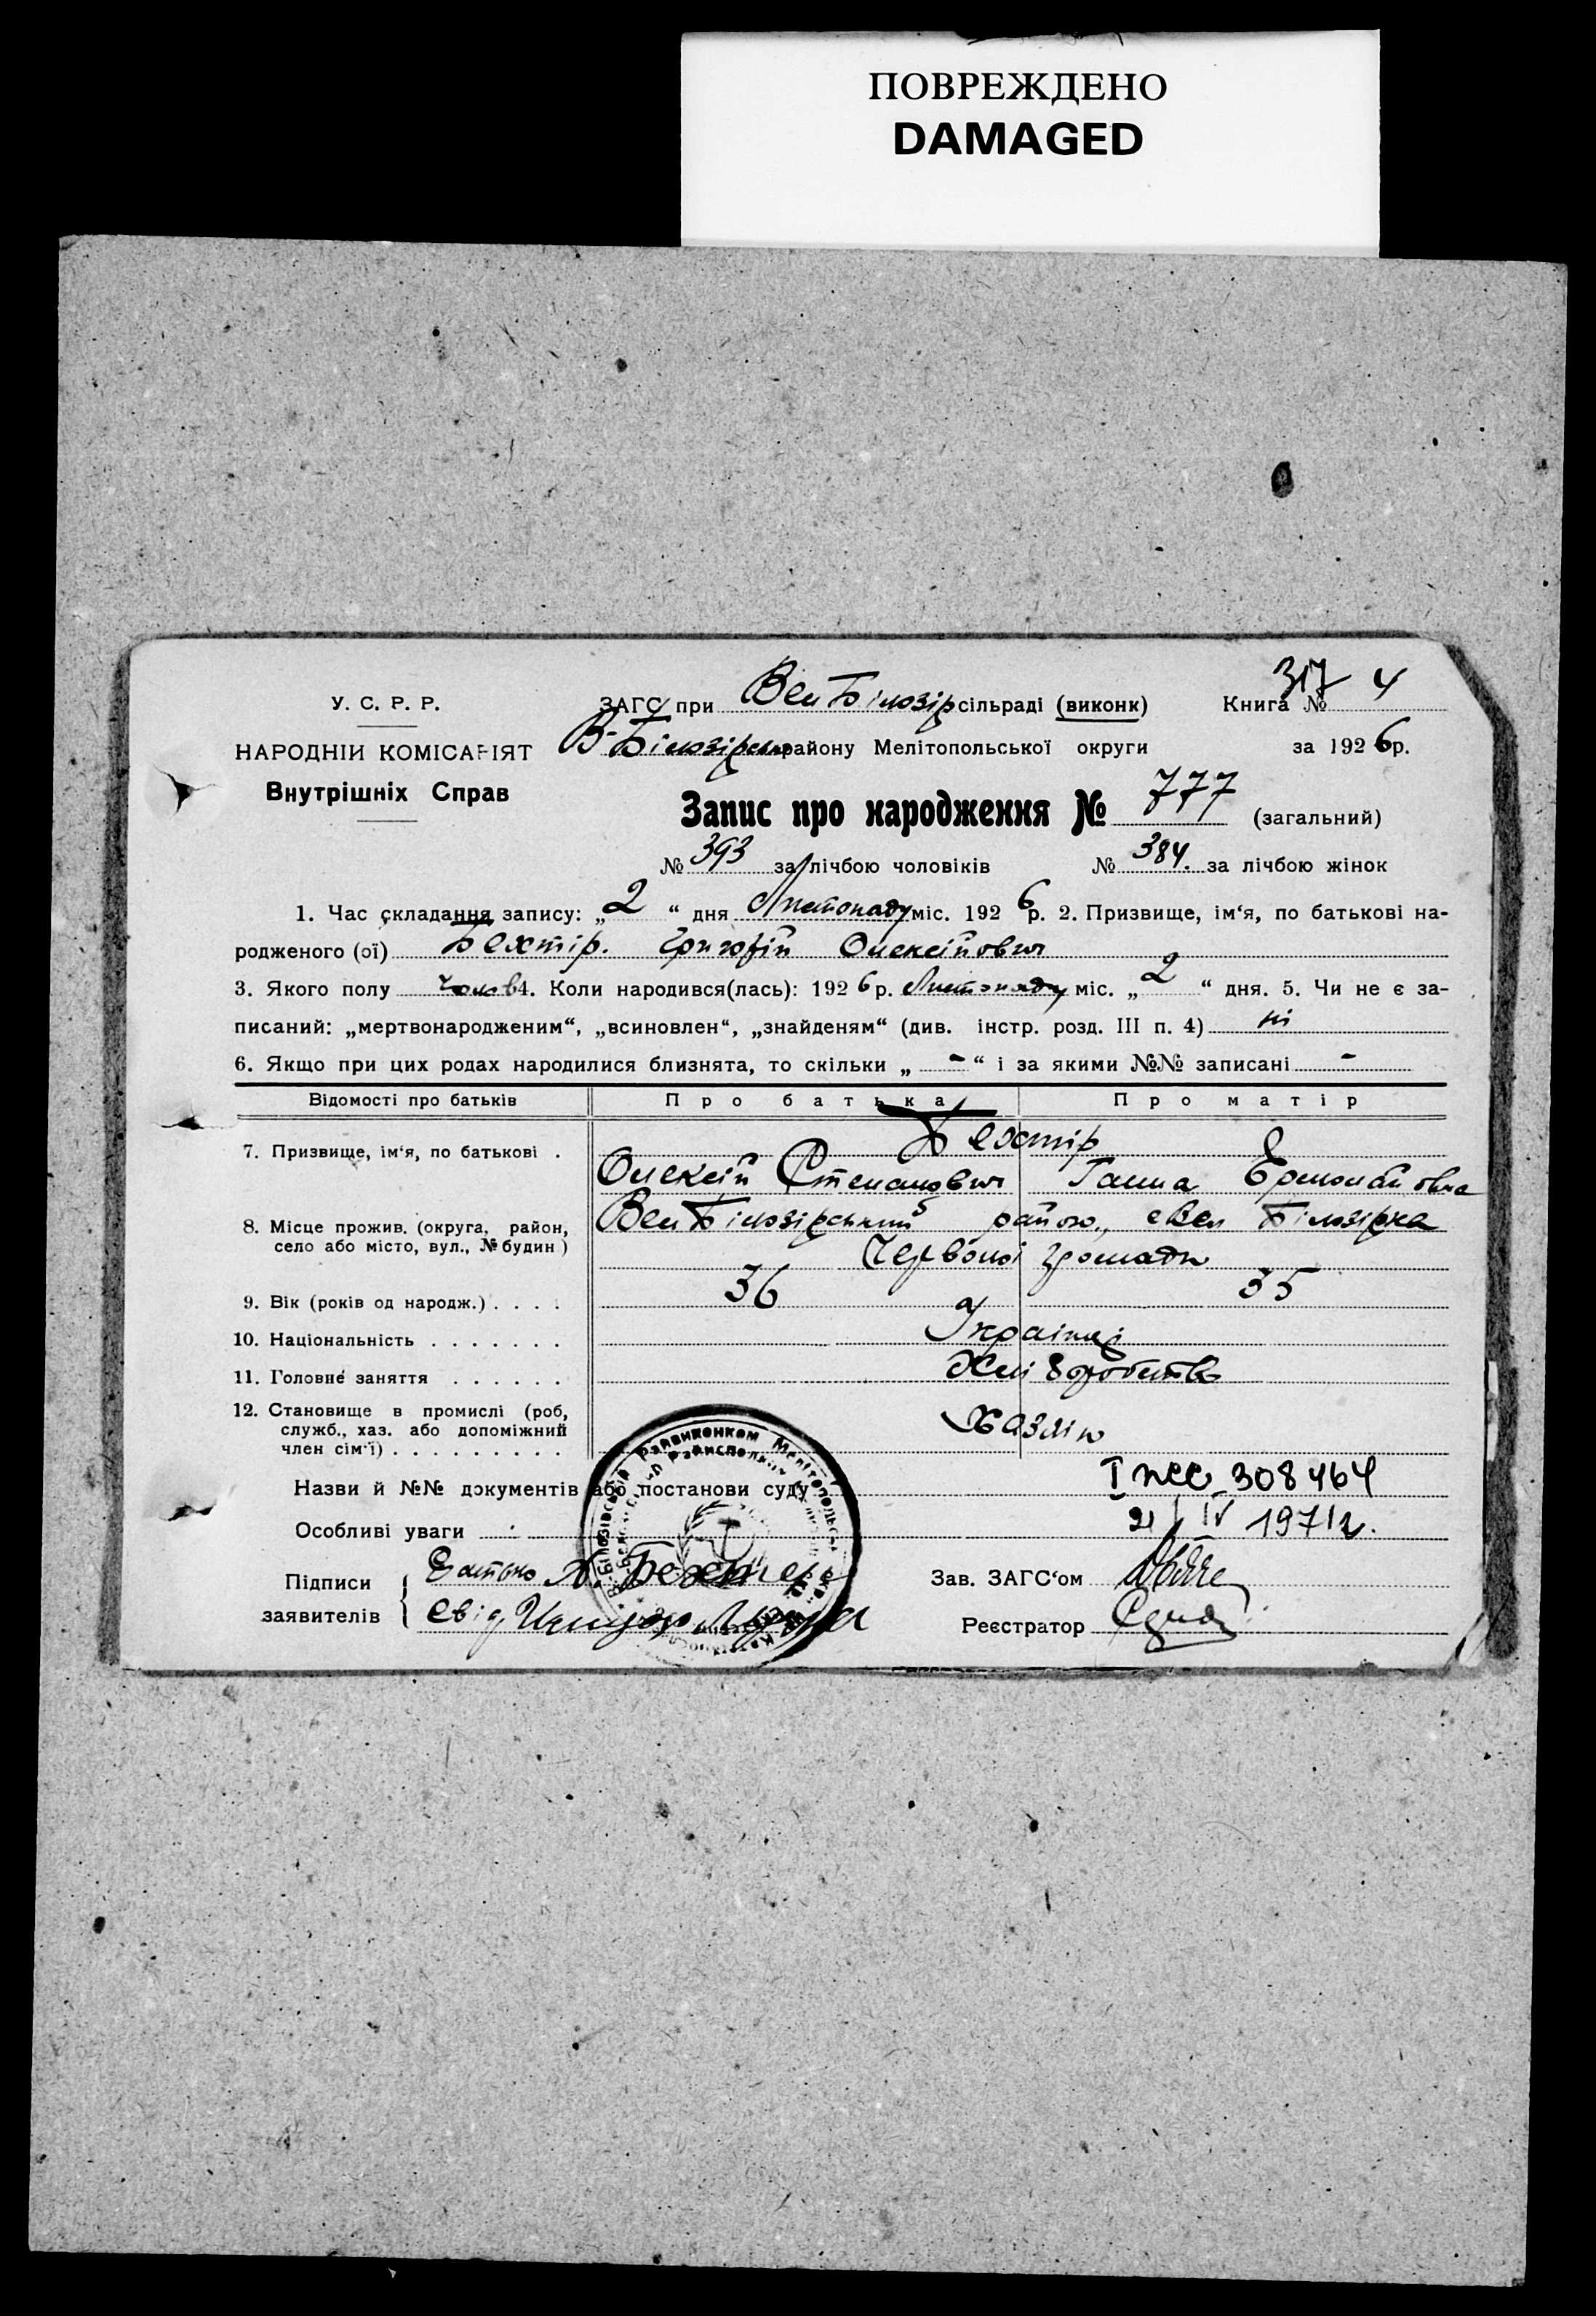 ПОВРЕЖДЕНО
DAMAGED
317 4
У. С. Р. Р.
ЗАГС при Вел Білозір сільраді (виконк) Книга №
НАРОДНІЙ КОМІСАРІЯТ
В-Білозірськ району Мелітопольської округи за 1926 р.
Внутрішніх Справ
Запис про народження № 777 (загальний)
№ 393 за лічбою чоловіків № 384. за лічбою жінок
1. Час складання запису: „2“ дня Листопаду міс. 1926 р. 2. Призвище, ім‘я, по батькові на-
родженого (ої) Бехтір. Григорій Олексійович
3. Якого полу Чолов 4. Коли народився(лась): 1926 р. Листопаду міс. „2“ дня. 5. Чи не є за-
писаний: „мертвонародженим“, „всиновлен“, „знайденям“ (див. інстр. розд. III п. 4) ні
6. Якщо при цих родах народилися близнята, то скільки „-“ і за якими №№ записані -
Відомості про батьків Про батька Про матір
Бехтір
7. Призвище, ім‘я, по батькові .
Олексій Степанович Ганна Ермолайовна
8. Місце прожив. (округа, район, село або місто, вул., № будин)
Вел Білозірський район., с Вел Білозірка
Червоної громади
9. Вік (років од народж.) . . . . 36 35
10. Національність . . . . . . . Українці
11. Головне заняття . . . . . . Хліборобство
12. Становище в промислі (роб,
служб., хаз. або допоміжний
член сім‘ї) . . . . . . . . . Хазяїн
Назви й №№ документів або постанови суду I 308464
Особливі уваги 21/IV 1971г.
Підписи
заявителів
Батько А. Бехтер
Свід
Зав. ЗАГС‘ом
Реєстратор